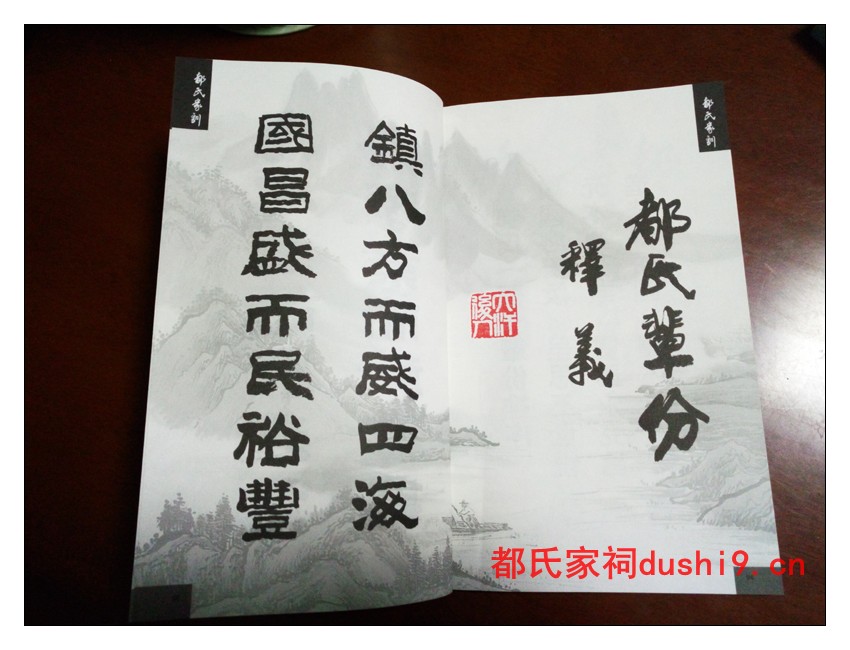 都氏家訓
都氏輩份
釋義
大汗後裔
鎮八方而威四海
國昌盛而民裕豐
都氏家訓
都氏家祠dushi9.cn